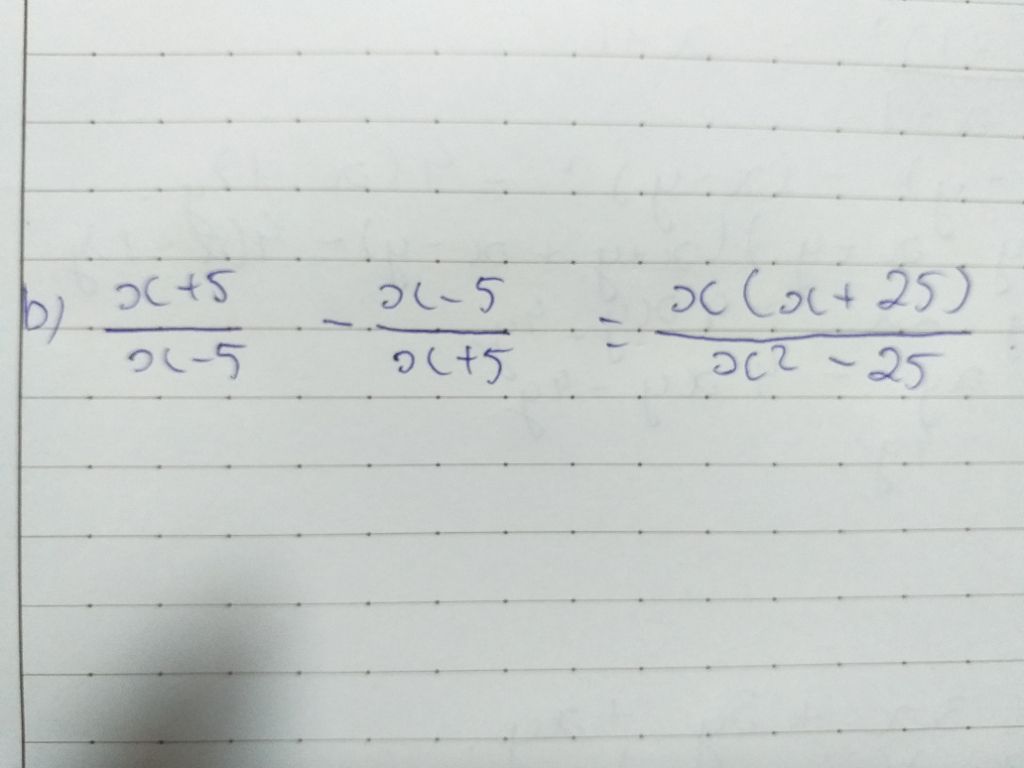 b) x+5 / x-5 - x-5 / x+5 = x(x+25) / x² - 25